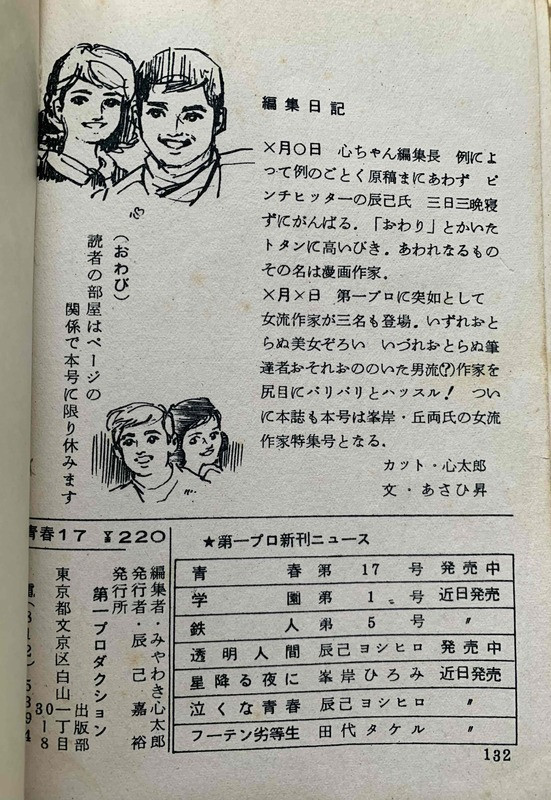 編集日記
×月○日　心ちゃん編集長　例によ
って例のごとく原稿まにあわず　ピ
ンチヒッターの辰己氏　三日三晩寝
ずにがんばる．「おわり」とかいた
トタンに高いびき．あわれなるもの
その名は漫画作家．
×月×日　第一プロに突如として
女流作家が三名も登場．いずれおと
らぬ美女ぞろい　いづれおとらぬ筆
達者おそれおののいた男流(?)作家を
尻目にバリバリとハッスル！　つい
に本誌も本号は峯岸・丘両氏の女流
作家特集号となる．
カット・心太郎
文・あさひ昇
（おわび）
読者の部屋はページの
関係で本号に限り休みます
青春17　¥220
編集者・みやわき心太郎
発行者・辰己嘉裕
発行所
第一プロダクション
出版部
東京都文京区白山一丁目
30-18
電(812)5894
★第一プロ新刊ニュース
青春　第17号　発売中
学園　第1号　近日発売
鉄人　第5号　〃
透明人間　辰己ヨシヒロ　発売中
星降る夜に　峯岸ひろみ　近日発売
泣くな青春　辰己ヨシヒロ　〃
フーテン劣等生　田代タケル　〃
132